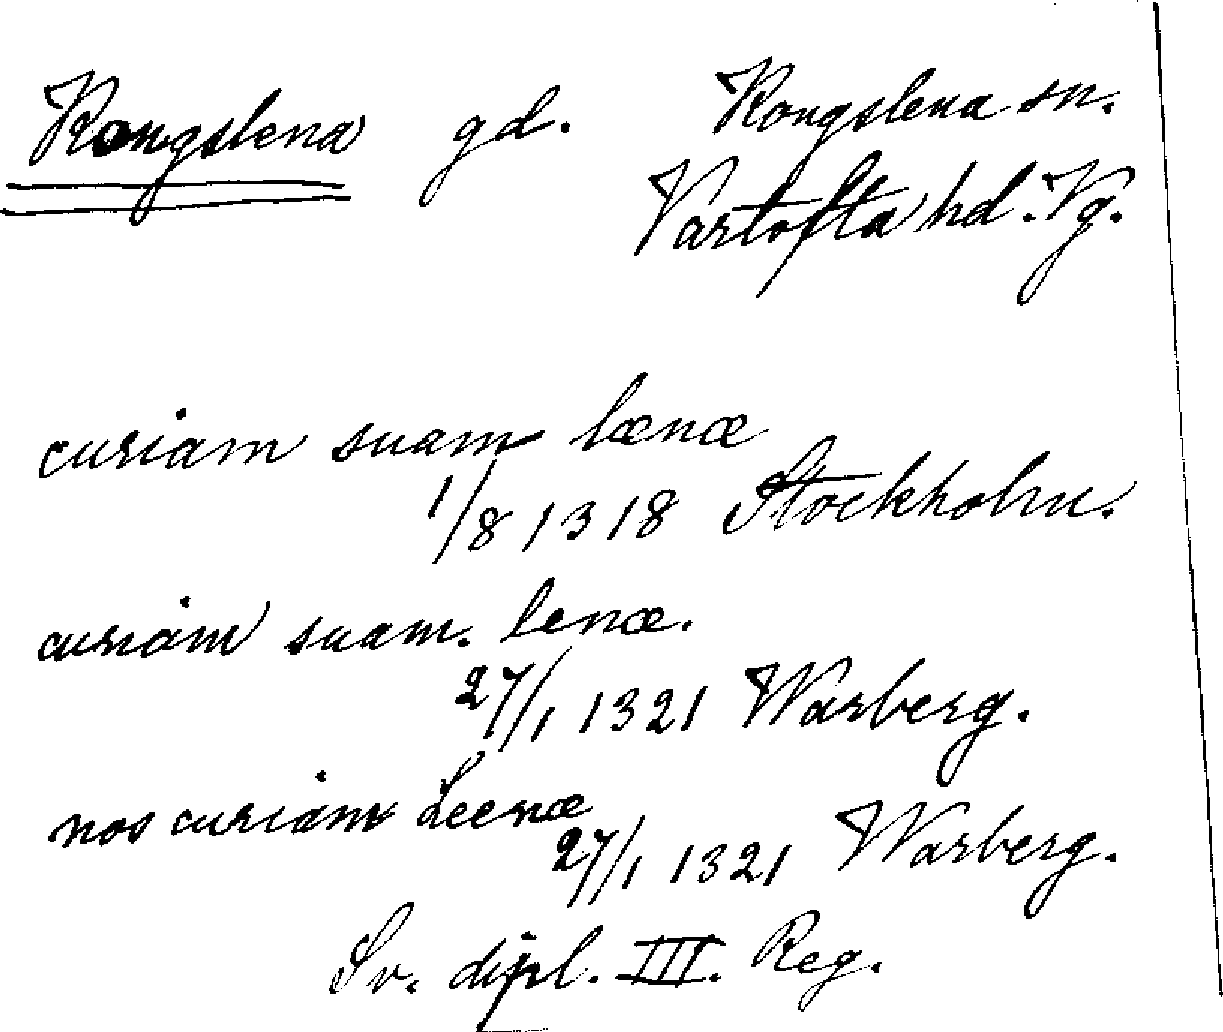 Kongslena gd. Kongslena sn.
Vartofta hd. Vg.
curiam suam lænæ
1/8 1318 Stockholm.
curiam suam. lenæ.
27/1 1321 Warberg.
nos curiam Leenæ
27/1 1321 Warberg.
Sv. dipl. III. Reg.